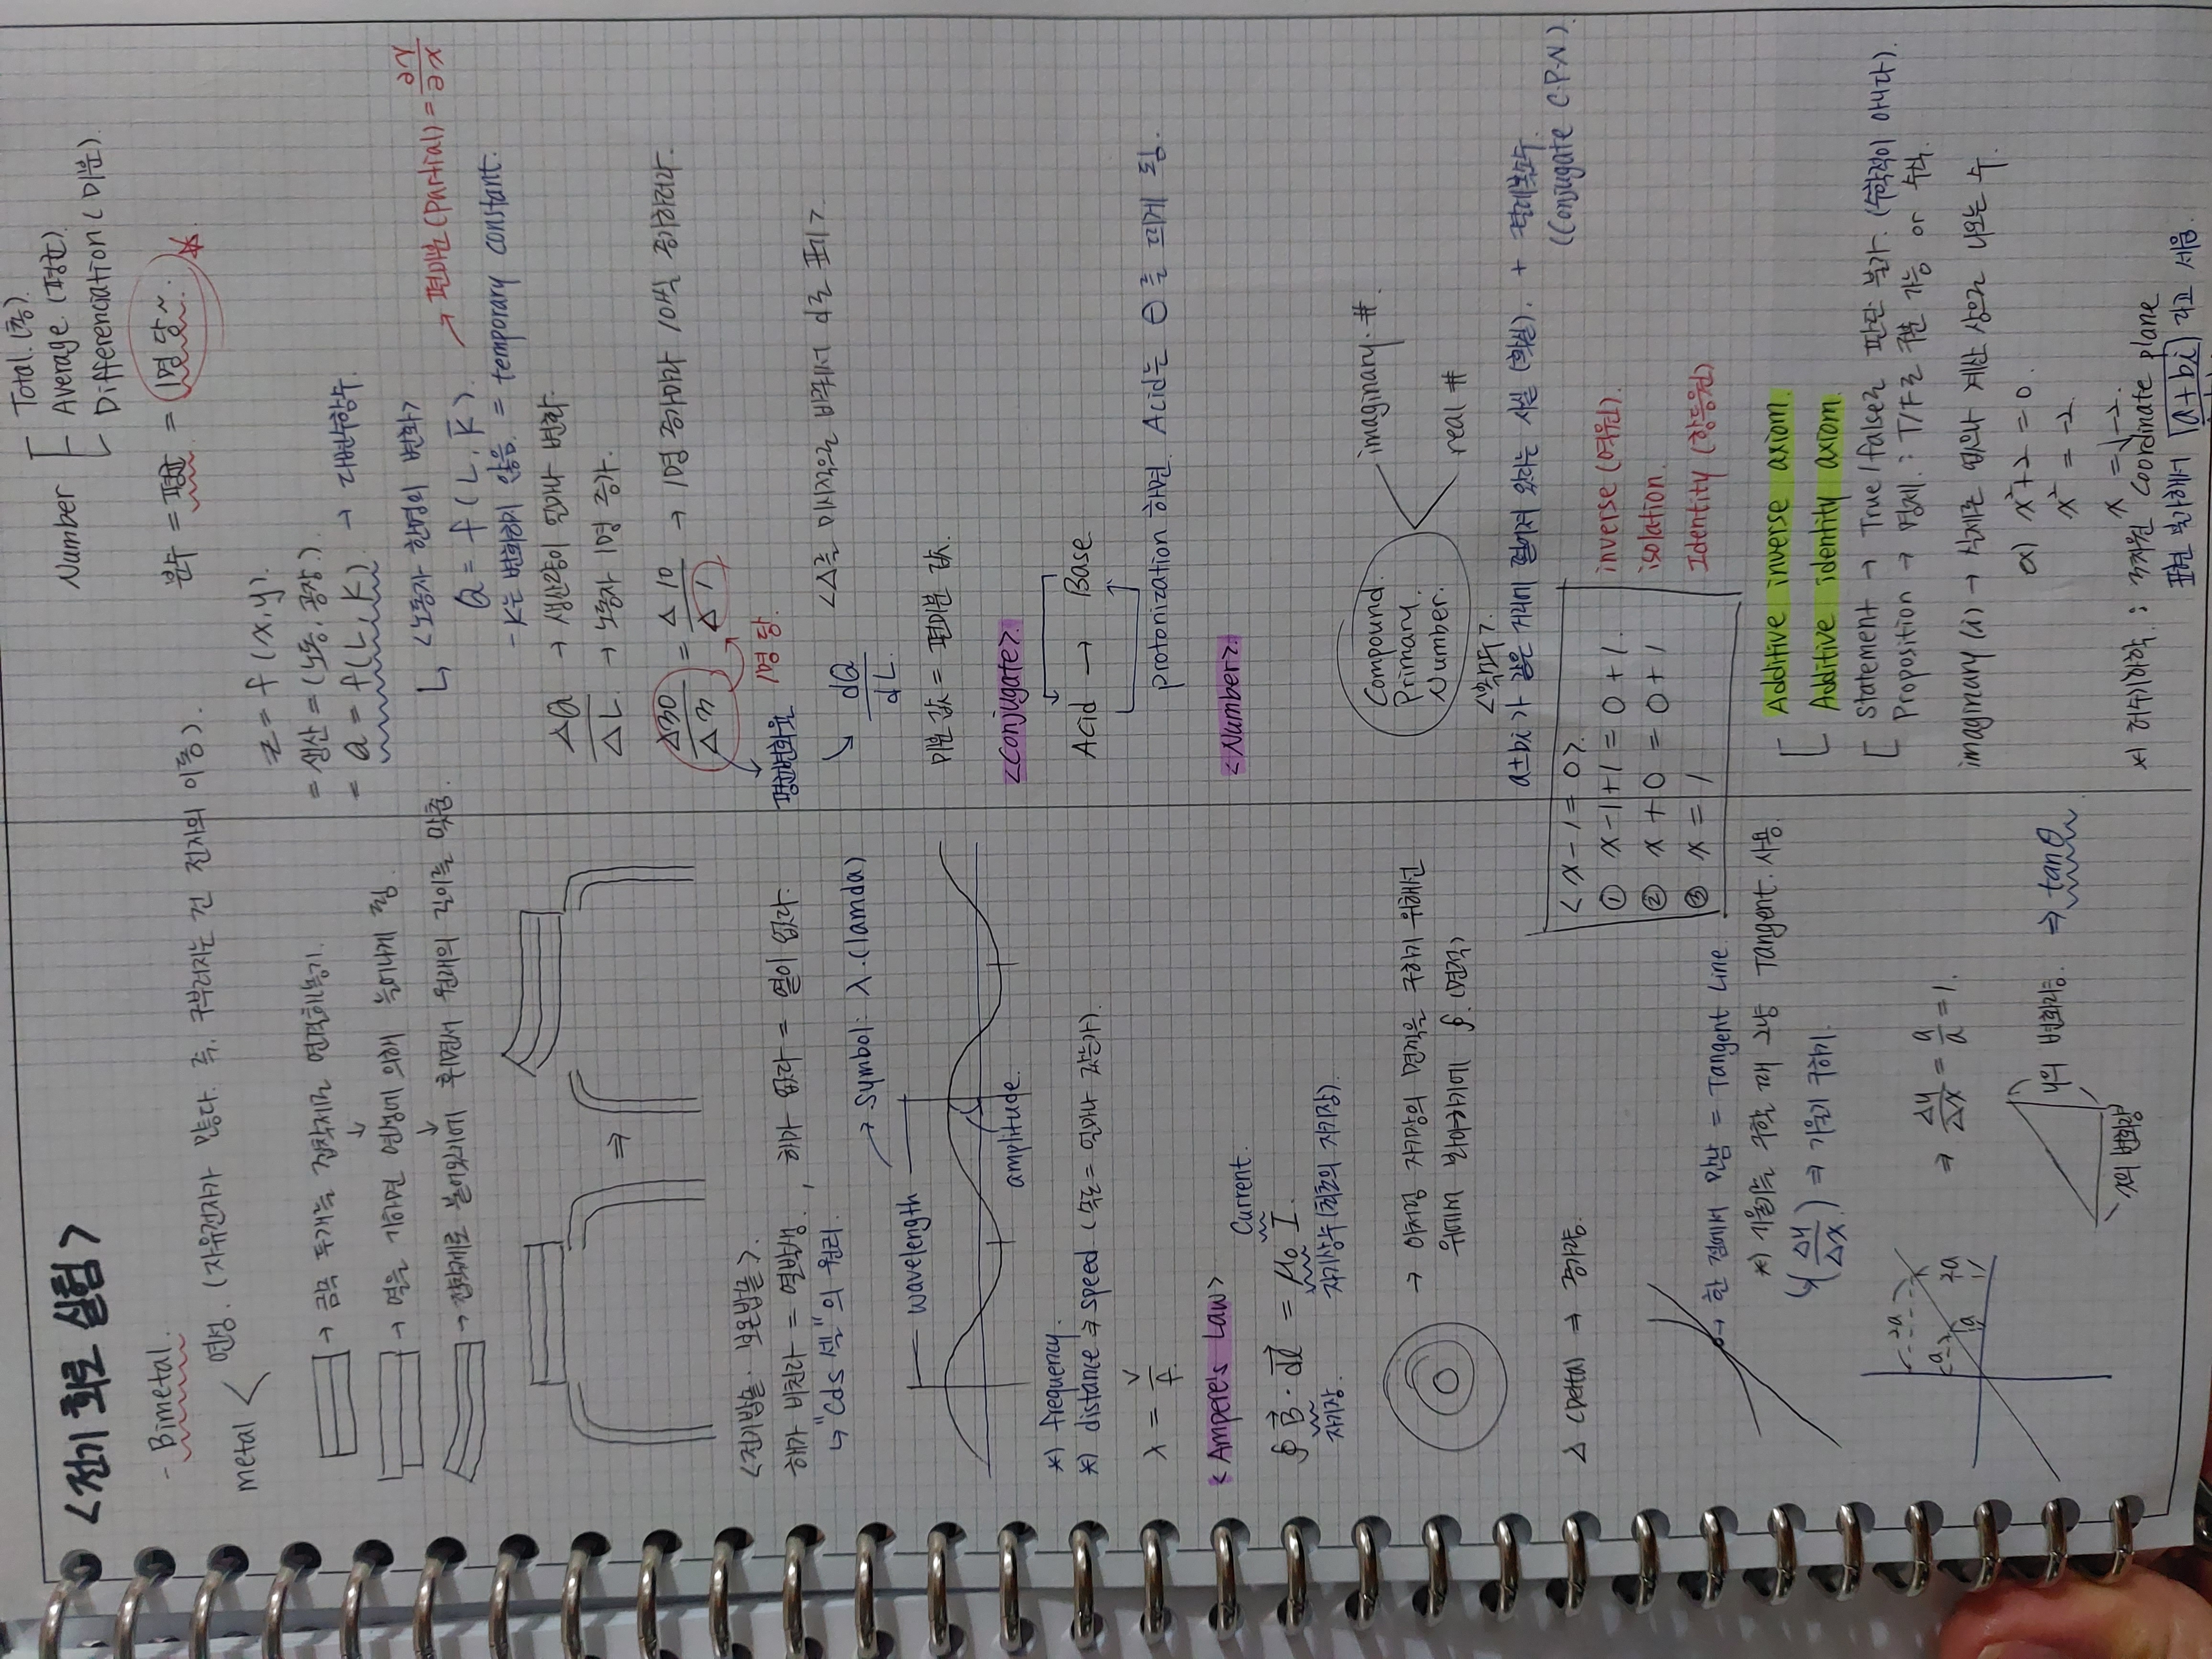 <전기 회로 실험>
- Bimetal.
metal < 연성. (자유전자가 많다. 즉, 구부러지는 건 전자의 이동).
→ 금속 두개는 접착제로 연결해놓기.
↓
→ 열을 가하면 연성에 의해 늘어나게 됨.
↓
→ 접착제로 붙어있기에 휘면서 원래의 길이를 맞춤.
⇒
<전기밥솥. 보온밥솥>.
해가 비친다 = 열발생. , 해가 없다 = 열이 없다.
↳ "Cds 셀"의 원리.
→ Symbol: λ.(lamda)
wavelength
amplitude.
*) frequency.
*) distance ⇒ speed (속도 = 얼마나 갔는가).
λ = v/f.
<Ampere's Law>
Current.
∮ B · dl = μ₀ I.
자기장.
자기상수(최초의 자기장).
→ 이처럼 자기장의 면적을 구하기 위해선
위에서 봐야하기에 ∮. (면적)
△ (Delta) ⇒ 증가량.
→ 한 점에서 만남 = Tangent Line
*) 기울기를 구할 때 그냥 Tangent. 사용.
(△y/△x) ⇒ 기울기 구하기.
2a
a
a
2a
⇒ △y/△x = a/a = 1.
y의 변화량. ⇒ tanθ
x의 변화량
Number
Total. (총).
Average. (평균).
Differenciation (미분).
분수 = 평균 = 1명 당~.
z = f (x,y).
= 생산 = (노동, 공장).
= Q = f(L, K). → 다변수함수.
↳ <노동자 한명의 변화>
Q = f (L, K). → 편미분(Partial) = ∂y/∂x
- K는 변화하지 않음. = temporary constant.
△Q → 생산량이 얼마나 변화.
△L. → 노동자 1명 증가.
△30/△3 = △10/△1 → 1명 증가마다 10씩 증가하더라.
평균변화율 1명 당.
↳ dQ/dL <△를 미시적으로 바꿔서 d로 표기>
미분 값 = 편미분 값.
<Conjugate>.
Acid → Base
protonization 하면. Acid는 ⊖를 띄게 됨.
<Number>.
Compound.
Primary.
Number.
imaginary. #.
real #
<복소수>.
a±bi가 같은 거리에 떨어져 있다는 사실 (확실). + 켤레복소수.
(Conjugate C.P.N).
<x-1=0>.
① x-1+1=0+1. inverse (역원).
② x+0=0+1 isolation.
③ x=1 Identity (항등원)
Additive inverse axiom.
Additive identity axiom.
Statement → True/False로 판단 불가. (수학적이 아니다).
Proposition → 명제. : T/F로 구분 가능 or 수식.
imaginary (i) → 실제로 없으나 계산 상으로 나오는 수.
ex) x²+2=0.
x²=-2
x=√-2.
*) 해석기하학. : 3차원 Coordinate plane
표현 못하기에 a+bi 라고 세움.